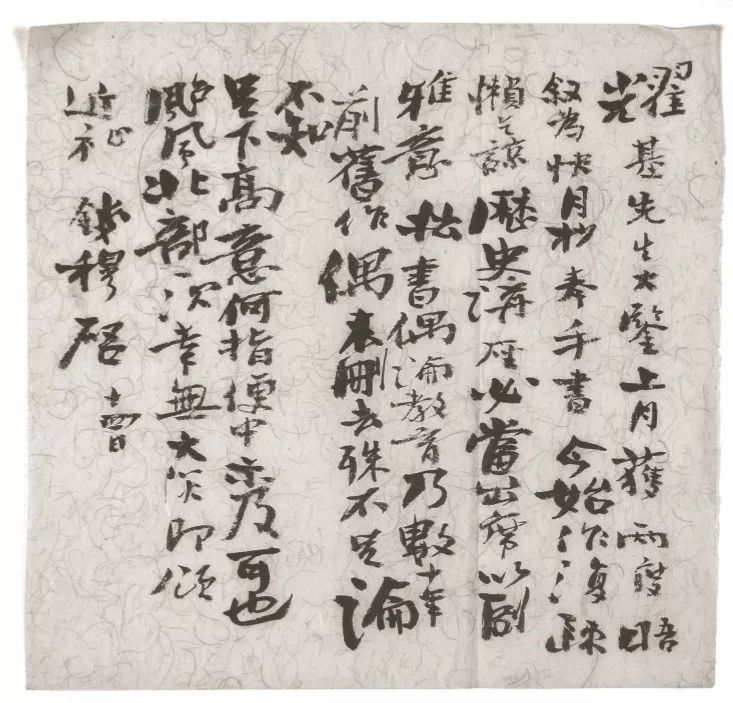 耀基先生大鑒上月獲兩度晤
叙為快月杪奉手書今始作復疎
懶乞諒歷史講座必當出席以副
雅意拙書偶論教育乃數十年
前舊作偶未刪去殊不足論
不知
足下高意何指便中示及可也
颱風北部汐幸無大災即頌
近祉 錢穆啟 十四日